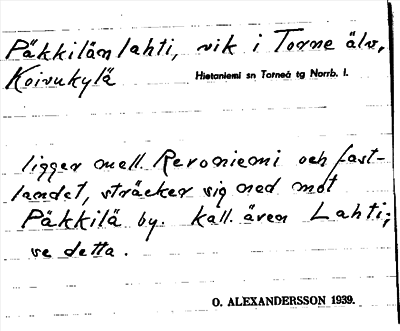 Päkkilänlahti, vik i Torne älv,
Koivukylä Hietaniemi sn Torneå tg Norrb. l.
ligger mell. Revoniemi och fast-
landet, sträcker sig ned mot
Päkkilä by. Kall. även Lahti;
se detta.
O. ALEXANDERSSON 1939.